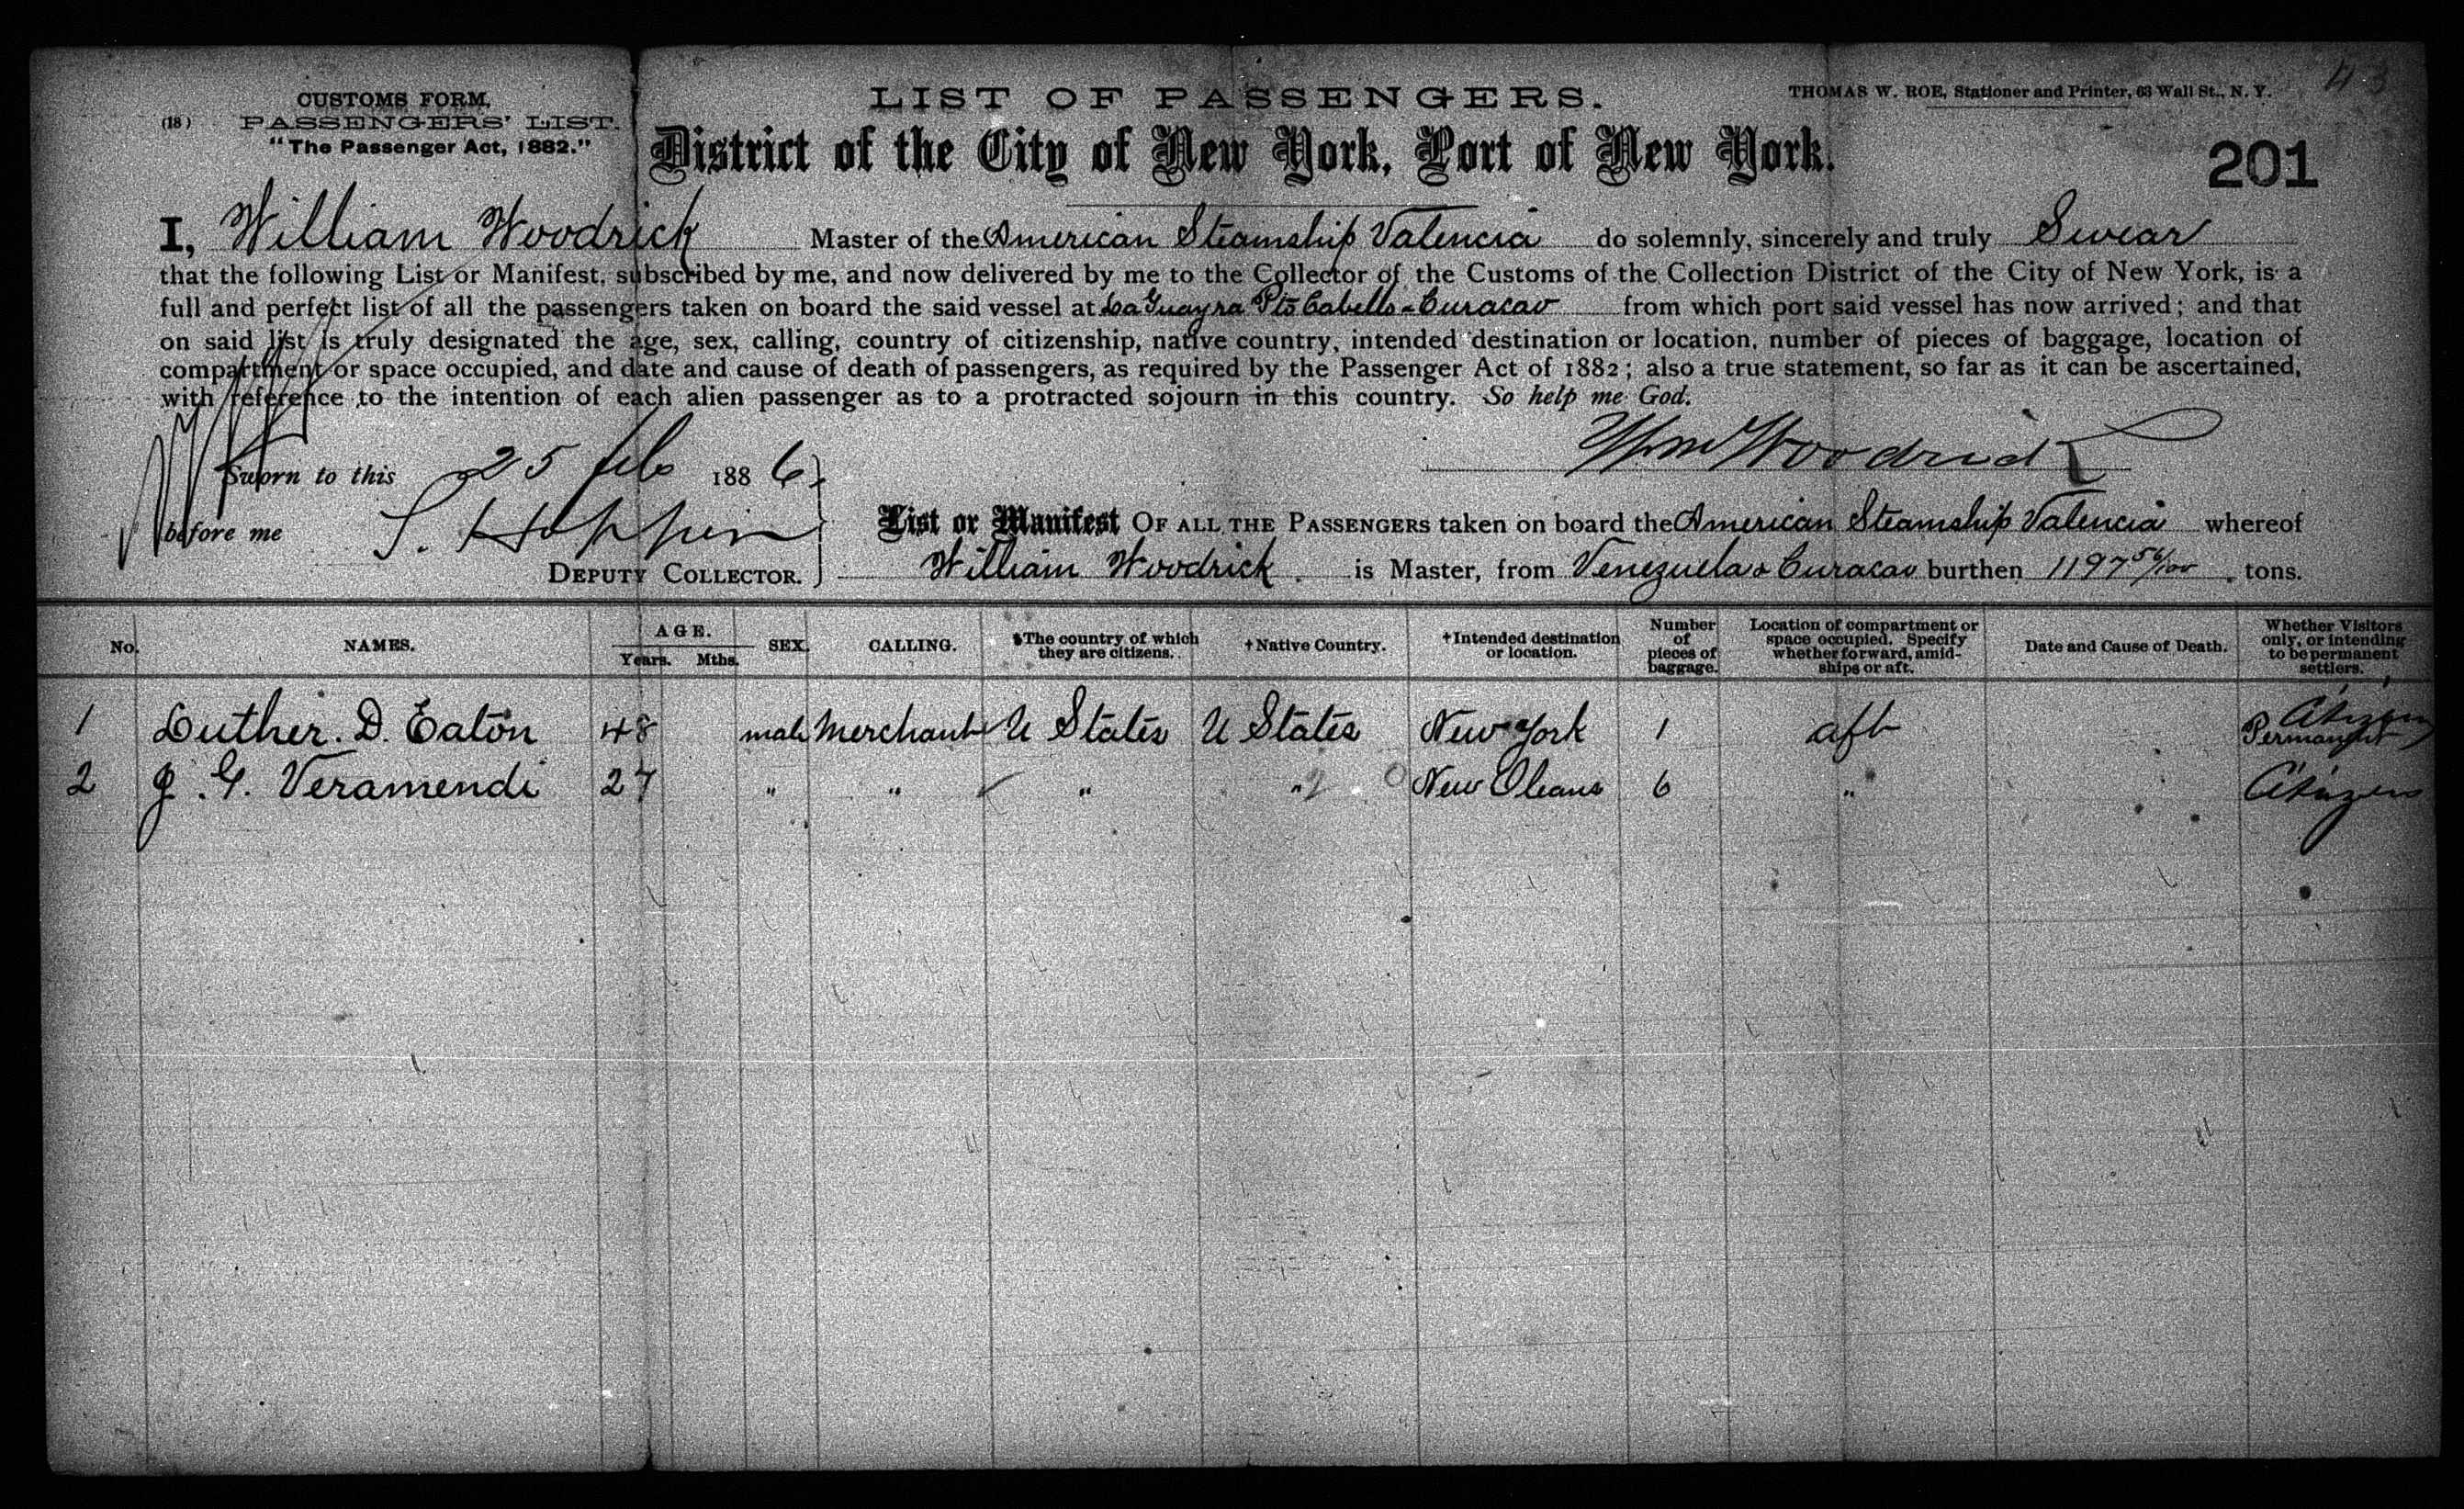 43
CUSTOMS FORM,
(18) PASSENGERS' LIST.
"The Passenger Act, 1882."
LIST OF PASSENGERS.
THOMAS W. ROE, Stationer and Printer, 63 Wall St., N. Y.
District of the City of New York, Port of New York.
201
I, William Woodrick Master of the American Steamship Valencia do solemnly, sincerely and truly Swear
that the following List or Manifest, subscribed by me, and now delivered by me to the Collector of the Customs of the Collection District of the City of New York, is a
full and perfect list of all the passengers taken on board the said vessel at La Guayra Pto Cabello - Curacao from which port said vessel has now arrived; and that
on said list is truly designated the age, sex, calling, country of citizenship, native country, intended destination or location, number of pieces of baggage, location of
compartment or space occupied, and date and cause of death of passengers, as required by the Passenger Act of 1882; also a true statement, so far as it can be ascertained,
with reference to the intention of each alien passenger as to a protracted sojourn in this country. So help me God.
Wm Woodrick
Sworn to this 25 feb 1886.
before me S. Hoppin
DEPUTY COLLECTOR.
List or Manifest OF ALL THE PASSENGERS taken on board the American Steamship Valencia whereof
William Woodrick. is Master, from Venezuela & Curacao burthen 1197 56/100. tons.
No. NAMES. AGE. Years. Mths. SEX. CALLING. *The country of which they are citizens. †Native Country. †Intended destination or location. Number of pieces of baggage. Location of compartment or space occupied. Specify whether forward, amidships or aft. Date and Cause of Death. Whether Visitors only, or intending to be permanent settlers.
1 Luther. D. Eaton 48 male Merchant U States U States New York 1 aft Citizen Permanent
2 J. G. Veramendi 27 " " " " New Oleans 6 " Citizen